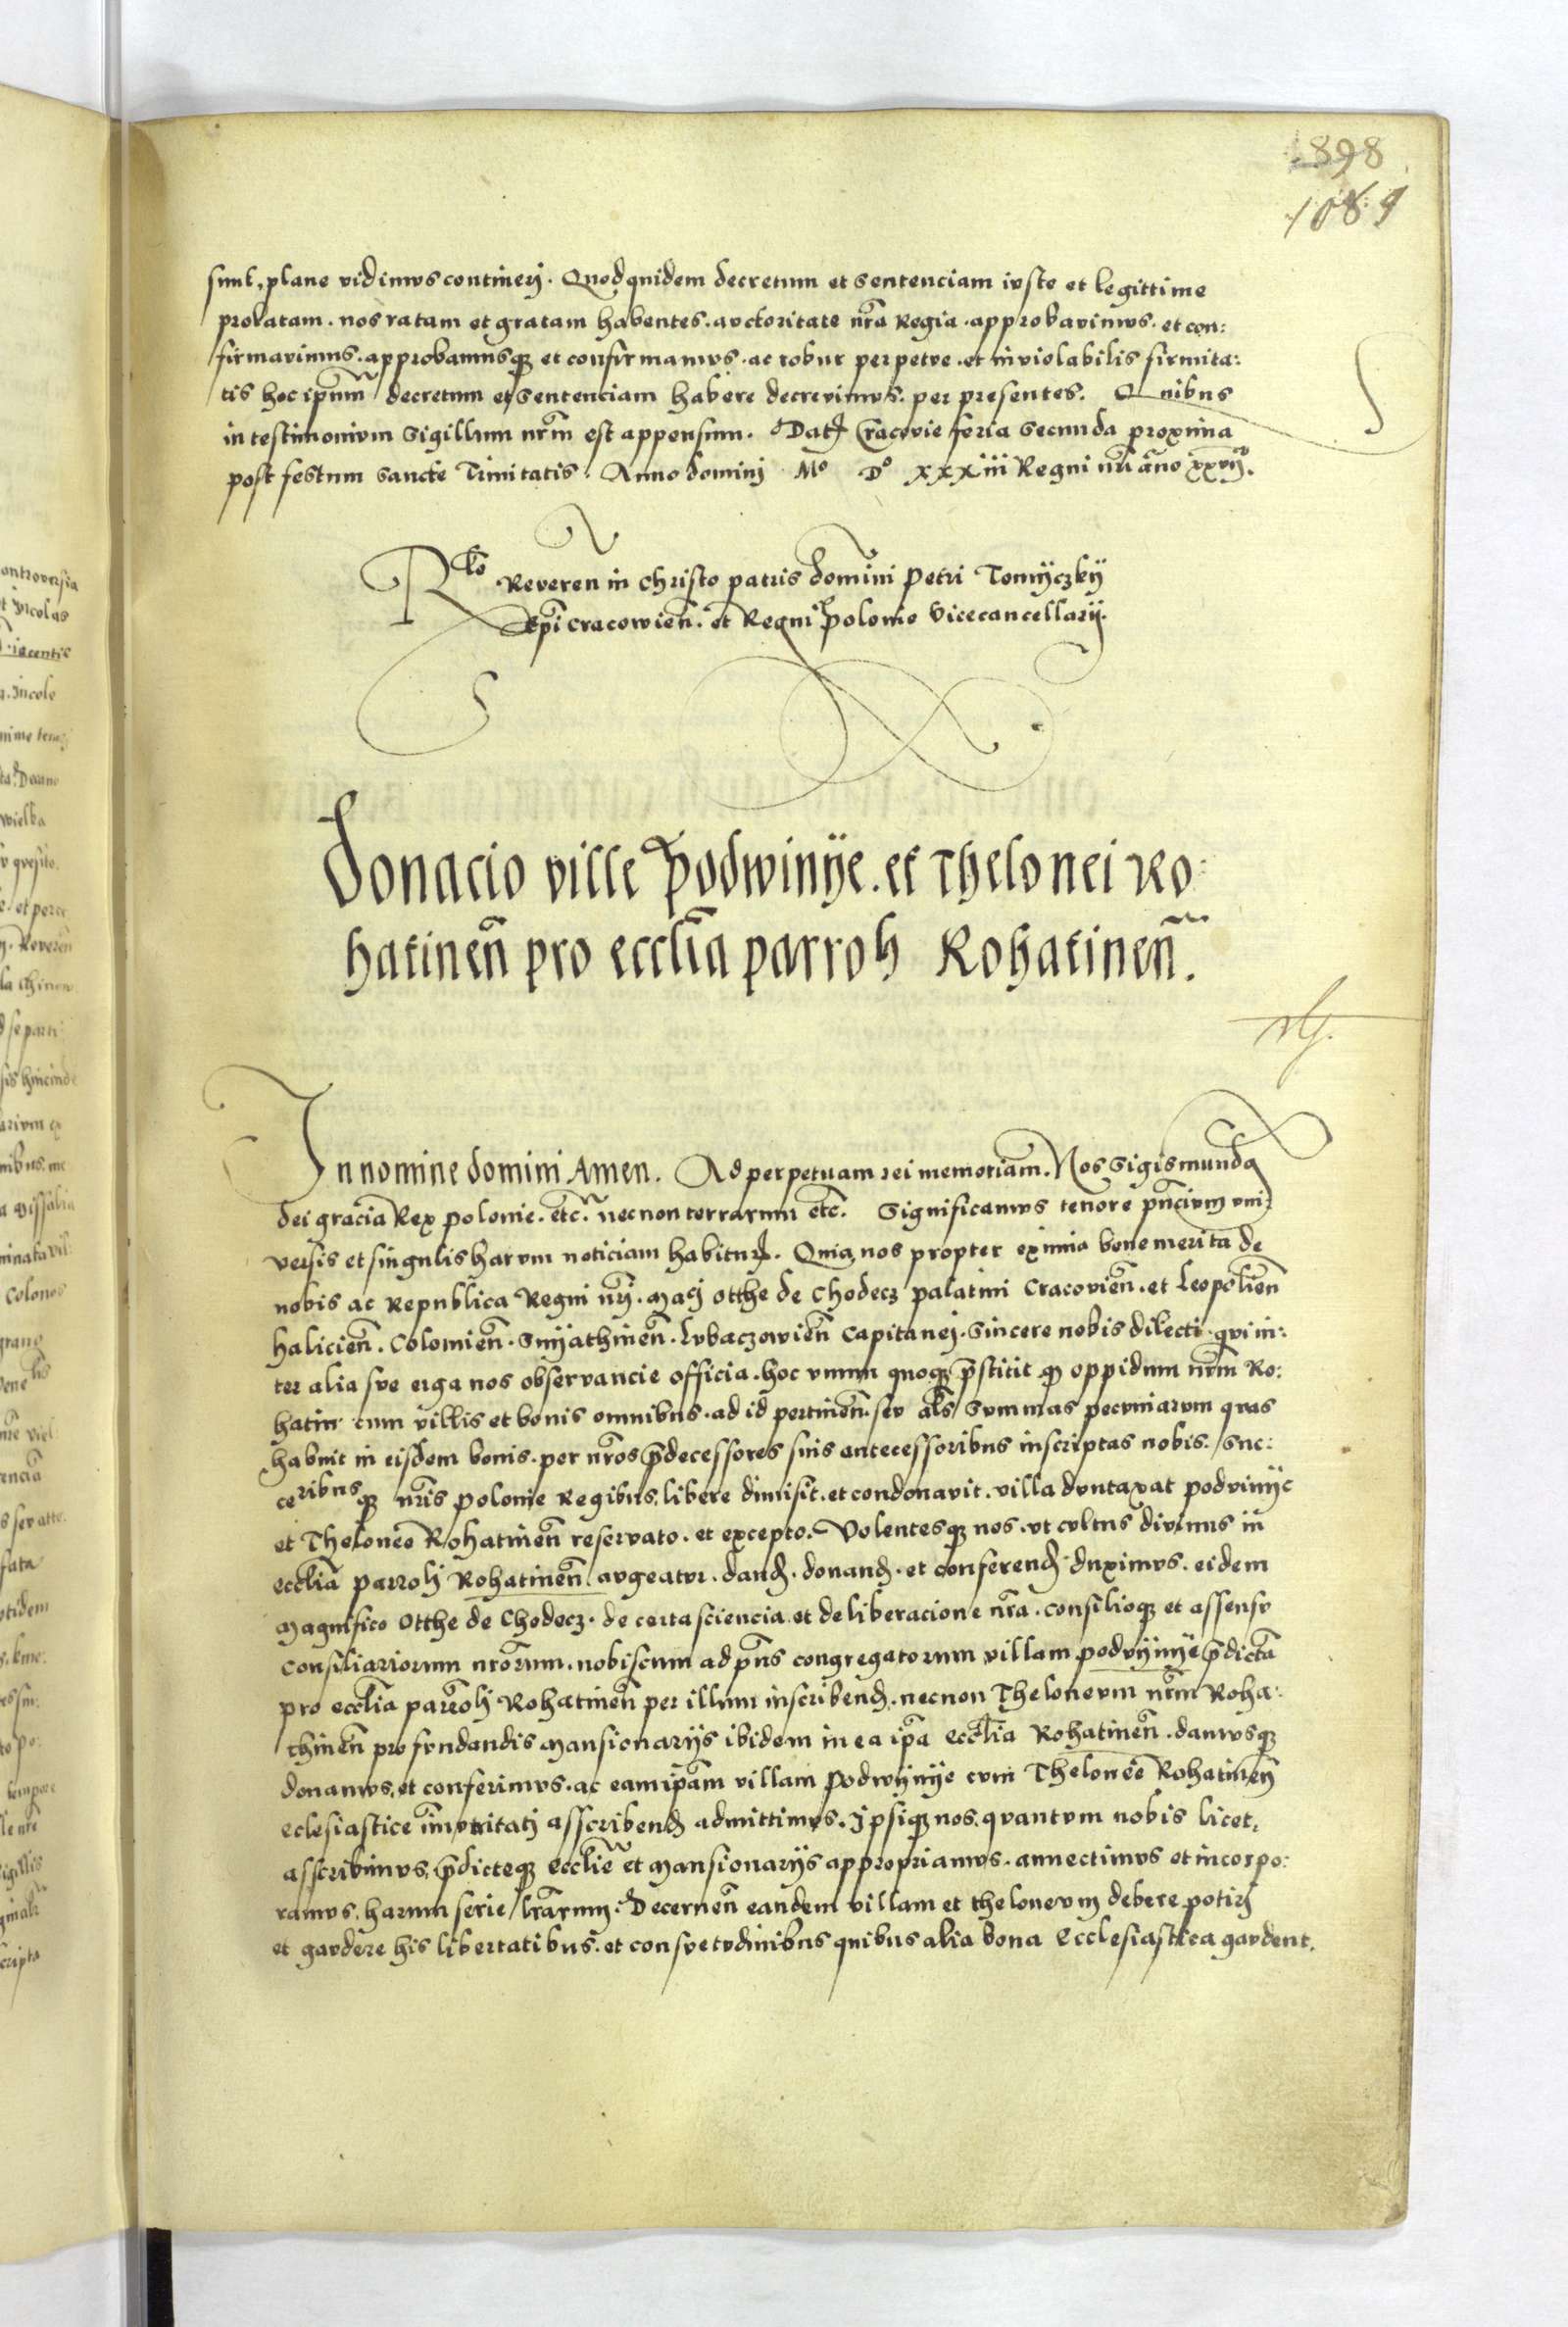 898
1089
sunt, plane vidimus contineri. Quodquidem decretum et sentenciam iuste et legittime
prolatam. nos ratam et gratam habentes. auctoritate nr̃a Regia. approbavimus. et con:
firmavimus. approbamusqꝫ et confirmamus. ac robur perpetue. et inviolabilis firmita:
tis hoc ip̃um decretum et sentenciam habere decrevimus. per presentes. Quibus
in testimonium Sigillum nr̃m est appensum. Datꝭ Cracovie feria secunda proxima
post festum sancte Trinitatis. Anno dominj Mº Dº xxxiii Regni nr̃i ãno xxvijº.
Rlº Reveren in christo patris domini Petri Tomyczky
Ep̃i cracowien̄. et Regni polonie Vicecancellarij.
Donacio ville Podwinÿe. et Thelonei Ro:
hatinen̄ pro eccl̃ia parroh Rohatinen̄.
In nomine domini Amen. Ad perpetuam rei memoriam. Nos Sigismundꝰ
dei gracia Rex polonie. etc̃. necnon terrarum etc̃. Significamus tenore pñcium uni:
versis et singulis harum noticiam habiturꝭ. Quia nos propter eximia bene merita de
nobis ac Republica Regni nr̃j. Macj otthe de Chodecz palatini Cracovien̄. et Leopolien̄
halicien̄. Colomien̄. Snyathinen̄. Lubaczovien̄ Capitanej. Sincere nobis dilecti. qui in:
ter alia sue erga nos observancie officia. hoc unum quoqꝫ p̃stitit qꝫ oppidum nr̃m Ro:
hatin cum villis et bonis omnibus. ad id pertinen̄. seu al̃s summas pecuniarum quas
habuit in eisdem bonis. per nr̃os p̃decessores suis antecessoribus inscriptas nobis. suc:
ceribusqꝫ nr̃is polonie Regibus, libere dimisit. et condonavit. villa duntaxat podvinÿe
et Theloneo Rohatinen̄ reservato. et excepto. Volentesqꝫ nos. ut cultus divinus in
eccl̃ia parroh Rohatinen̄ augeatur. dandꝭ. donandꝭ. et conferendꝭ duximus. eidem
Magnifico Otthe de Chodecz. de certa sciencia et deliberacione nr̃a. consilioqꝫ et assensu
Consiliariorum nr̃orum. nobiscum ad pñs congregatorum villam podvÿnÿe p̃dictã
pro eccl̃ia parroh Rohatinen̄ per illum inscribendꝭ. necnon Theloneum nr̃m Roha:
thinen̄ pro fundandis Mansionariis ibidem in ea ip̃a eccl̃ia Rohatinen̄. damusqꝫ
donamus. et conferimus. ac eamip̃am villam Podwÿnÿe cum Theloneo Rohatinen̄
eclesiastice im̃unitatj asscribendꝭ admittimus. Ipsiqꝫ nos. quantum nobis licet,
asscribimus, p̃dicteqꝫ eccl̃ie et Mansionarijs appropriamus. annectimus et incorpo:
ramus. harum serie lr̃arum. Decernen̄ eandem villam et theloneum debere potirj
et gaudere his libertatibus. et consuetudinibus quibus alia bona Ecclesiastica gaudent.